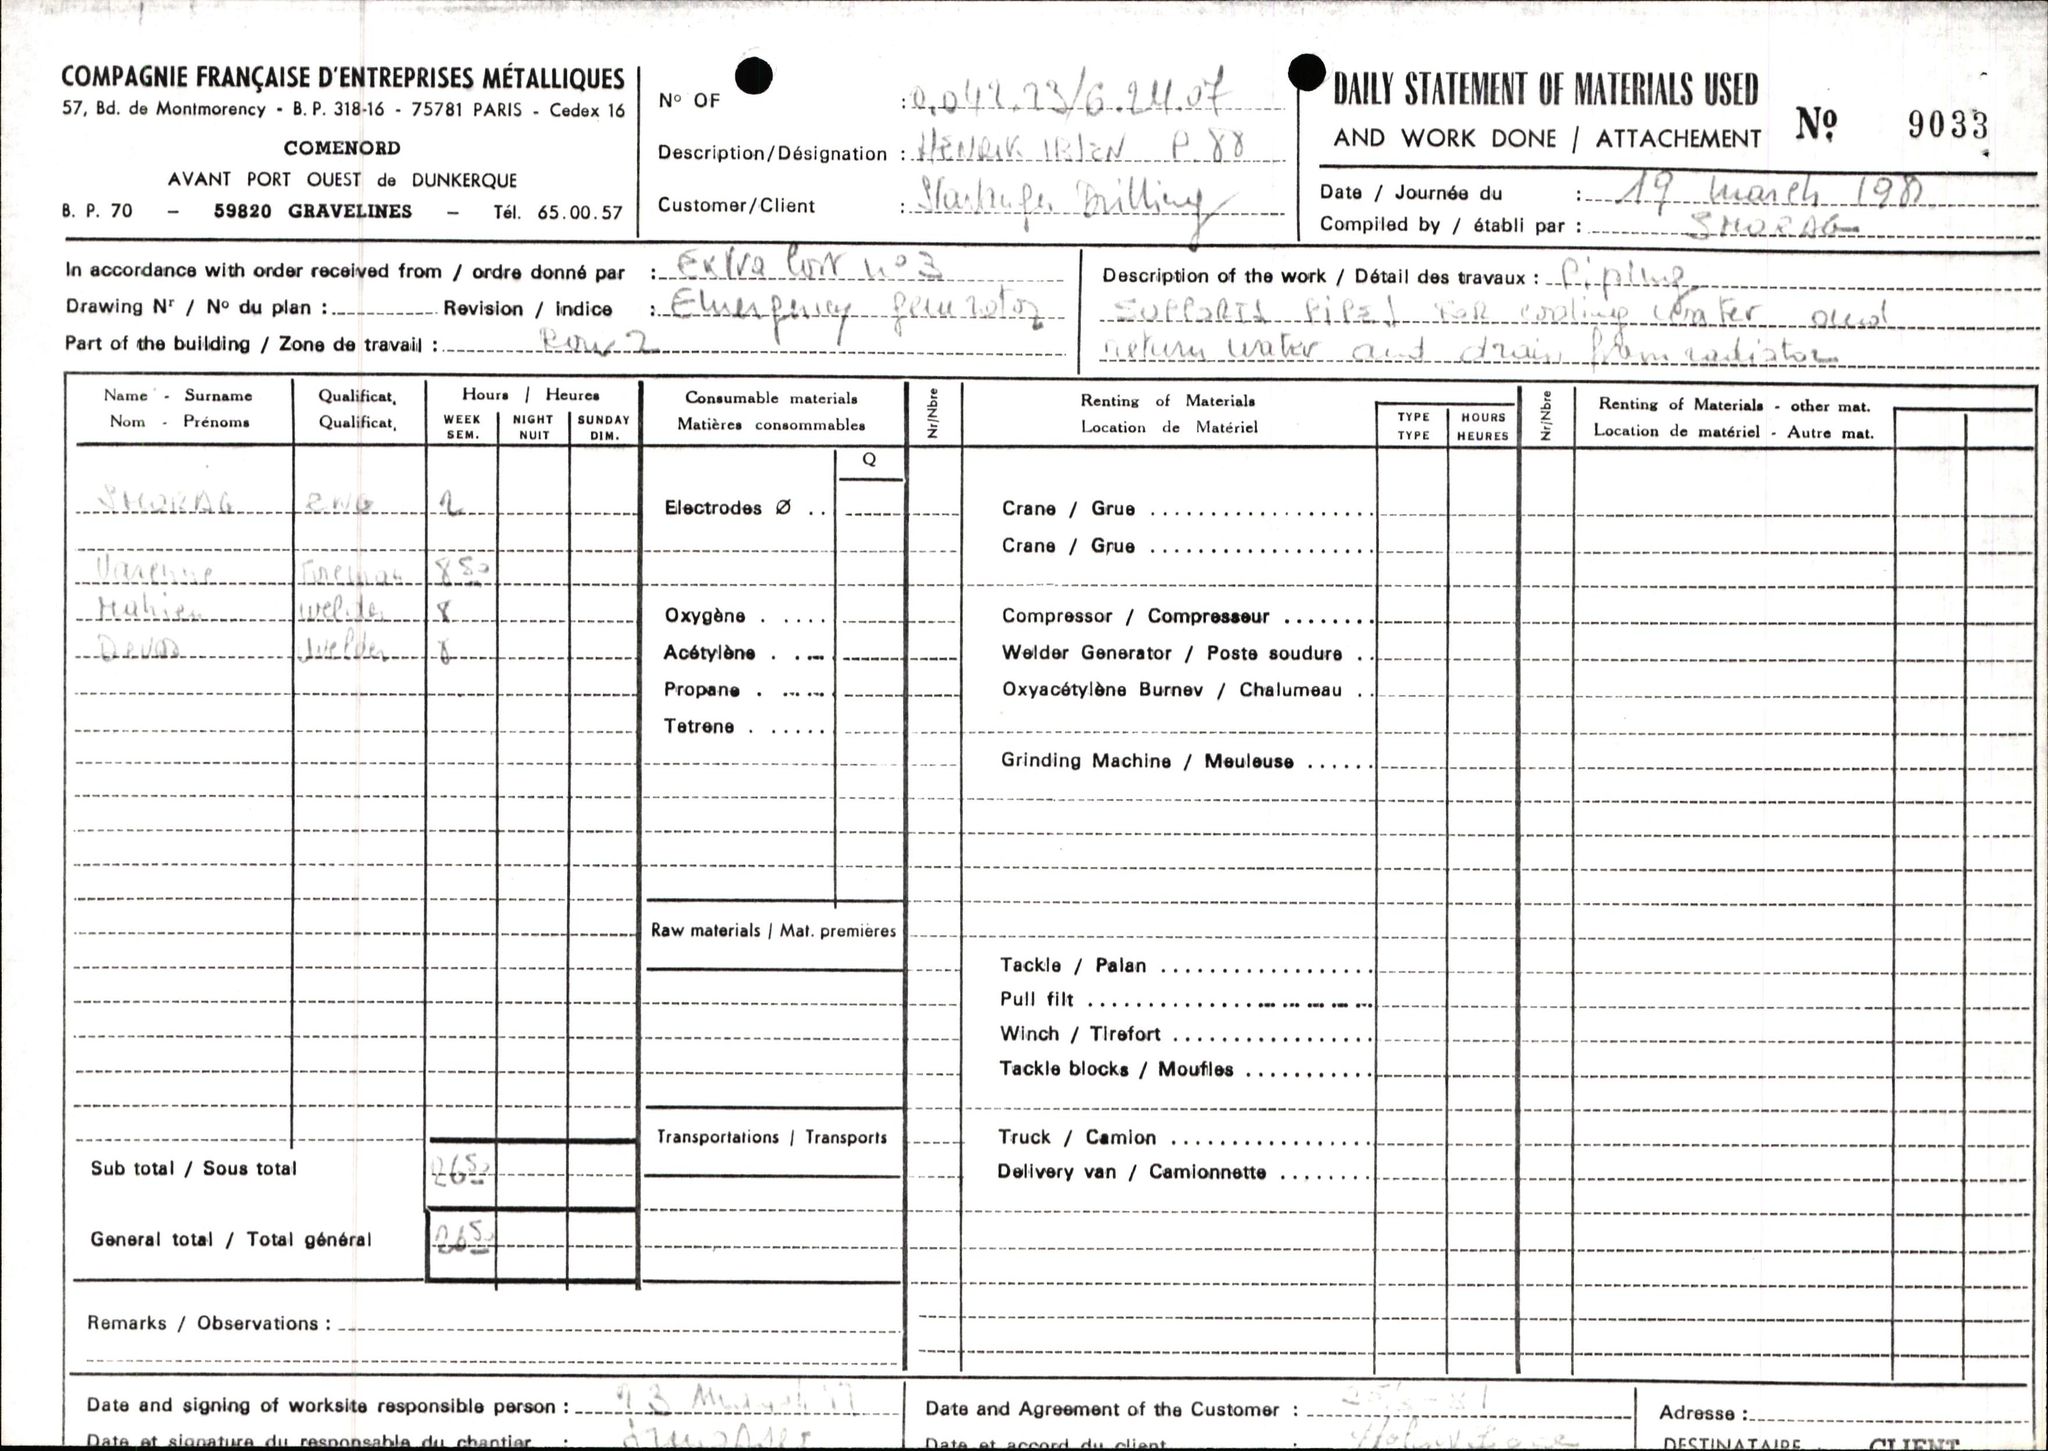 COMPAGNIE FRANÇAISE D'ENTREPRISES MÉTALLIQUES
57, Bd. de Montmorency - B. P. 318-16 - 75781 PARIS - Cedex 16
COMENORD
AVANT PORT OUEST de DUNKERQUE
B. P. 70 - 59820 GRAVELINES - Tél. 65.00.57
No OF : 0.042.23/6.24.07
Description/Désignation : HENRIK IBSEN P.88
Customer/Client : Drilling
DAILY STATEMENT OF MATERIALS USED
AND WORK DONE / ATTACHEMENT No 9033
Date / Journée du : 19 march 198
Compiled by / établi par : SMORAG
In accordance with order received from / ordre donné par : Extra no 3
Drawing Nr / No du plan : Revision / indice : Emergency generator
Part of the building / Zone de travail : 2
Description of the work / Détail des travaux : Piping
SUPPORTS PIPES FOR cooling water and
return water and drain from radiator
Name - Surname
Nom - Prénoms
Qualificat.
Qualificat.
Hours / Heures
WEEK SEM.
NIGHT NUIT
SUNDAY DIM.
Consumable materials
Matières consommables
Q
Nr/Nbre
Renting of Materials
Location de Matériel
TYPE TYPE
HOURS HEURES
Nr/Nbre
Renting of Materials - other mat.
Location de matériel - Autre mat.
SMORAG ENG 2 Electrodes Ø .. Crane / Grue
Crane / Grue
Varenne Foreman 8 50
Mahieu welder 8 Oxygène Compressor / Compresseur
Devos Welder 8 Acétylène Welder Generator / Poste soudure
Propane Oxyacétylène Burnev / Chalumeau
Tetrene
Grinding Machine / Meuleuse
Raw materials / Mat. premières
Tackle / Palan
Pull filt
Winch / Tirefort
Tackle blocks / Moufles
Transportations / Transports Truck / Camion
Sub total / Sous total 26 50 Delivery van / Camionnette
General total / Total général 26 50
Remarks / Observations :
Date and signing of worksite responsible person :
Date and Agreement of the Customer :
Adresse :
Date et signature du responsable du chantier :
Date et accord du client :
DESTINATAIRE : CLIENT